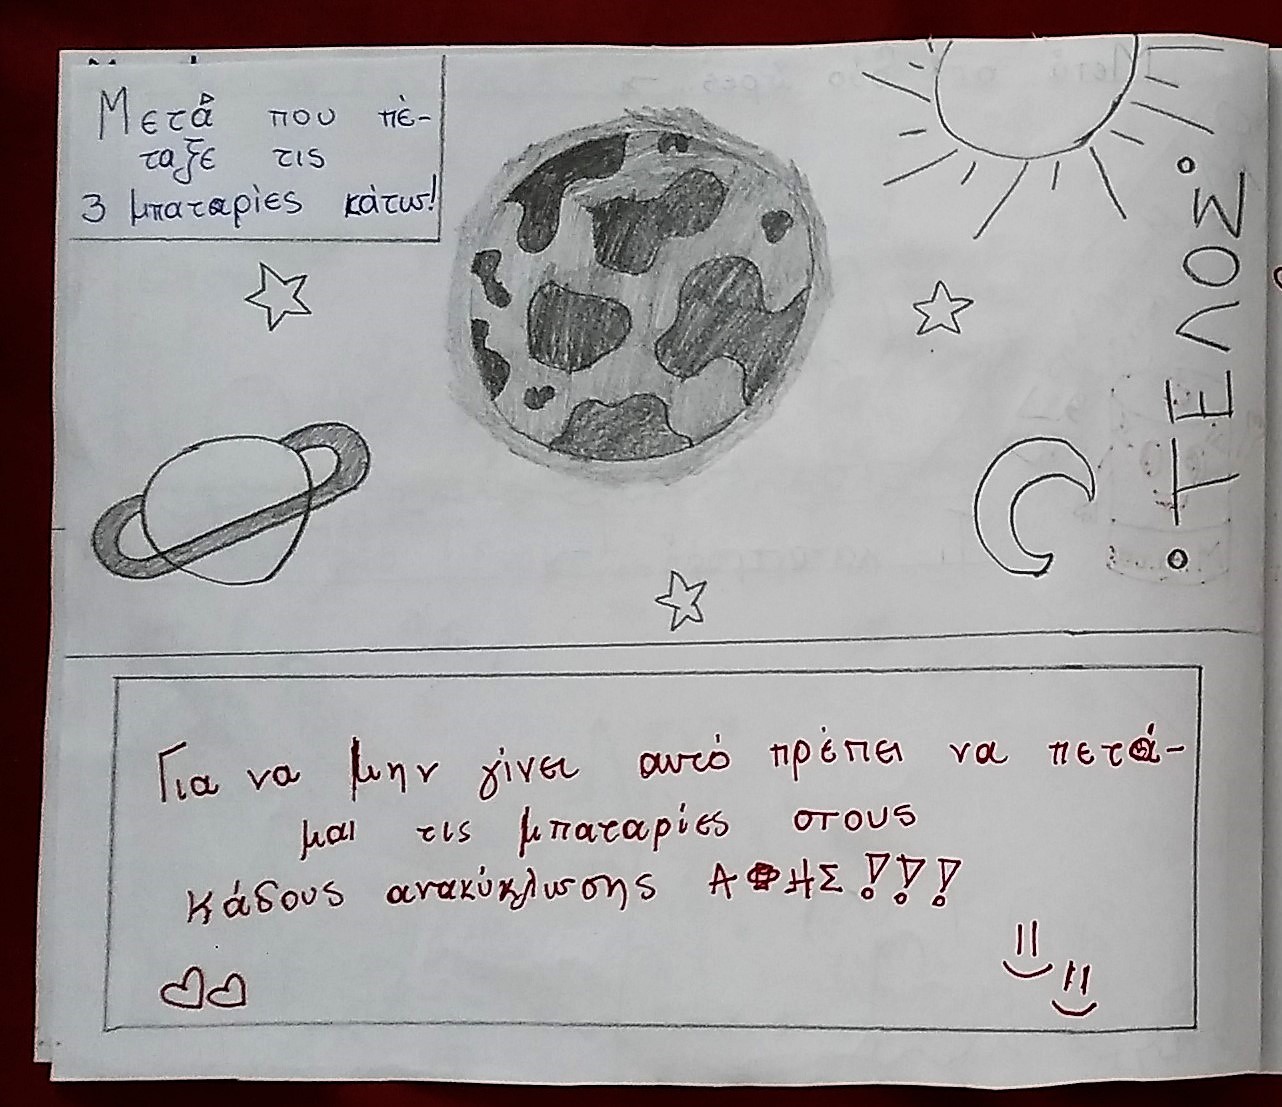 Μετά που πέ-
ταξε τις
3 μπαταρίες κάτω!
ΤΕΛΟΣ
Για να μην γίνει αυτό πρέπει να πετά-
μαι τις μπαταρίες στους
κάδους ανακύκλωσης ΑΦΗΣ!!!